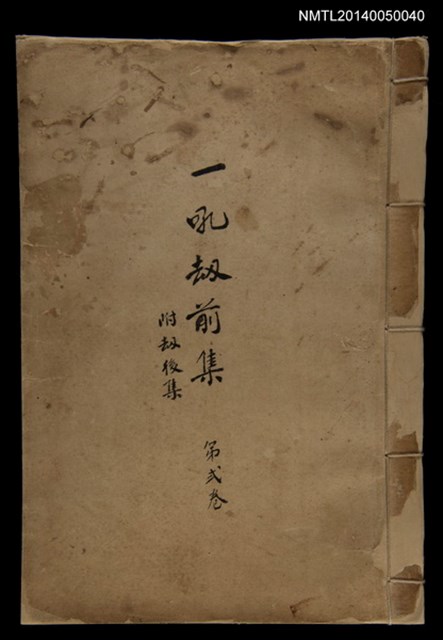 NMTL20140050040
一吼劫前集
附劫後集
第弍卷